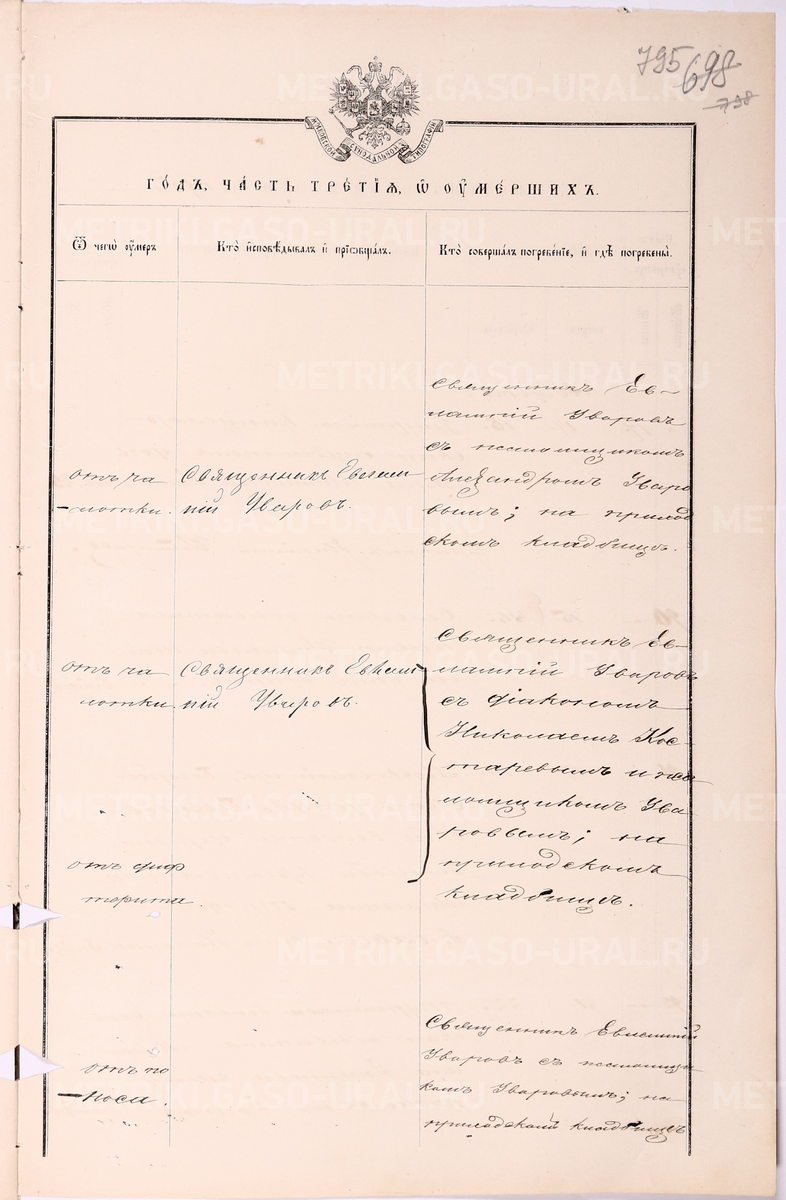 795 698
798
МОСКОВСКОЙ СѴНОДАЛЬНОЙ ТИПОГРАФІИ
ГО́ДЪ, ЧА́СТЬ ТРЕ́ТІѦ, Ѡ҆ ОУ҆МЕ́РШИХЪ.
Ѿ чегѡ̀ оу҆́меръ
Кто̀ и҆сповѣ́дывалъ и҆ прїѡбща́лъ.
Кто̀ соверша́лъ погребе́нїе, и҆ гдѣ̀ погребены̀.
отъ ча
-хотки.
Священникъ Евлам
пій Уваровъ.
Священникъ Ев-
лампій Уваровъ
съ псаломщикомъ
Александромъ Уваро
вымъ; на приход
скомъ кладбищѣ.
отъ ча
хотки.
Священникъ Евлам
пій Уваровъ.
Священникъ Ев-
лампій Уваровъ
съ діакономъ
Николаемъ Кос-
таревымъ и пса
ломщикомъ Ува-
ровымъ; на
приходскомъ
кладбищѣ.
отъ диф
терита.
отъ по
-носа.
Священникъ Евлампій
Уваровъ съ псаломщи-
комъ Уваровымъ; на
приходскомъ кладбищѣ
METRIKI.GASO-URAL.RU